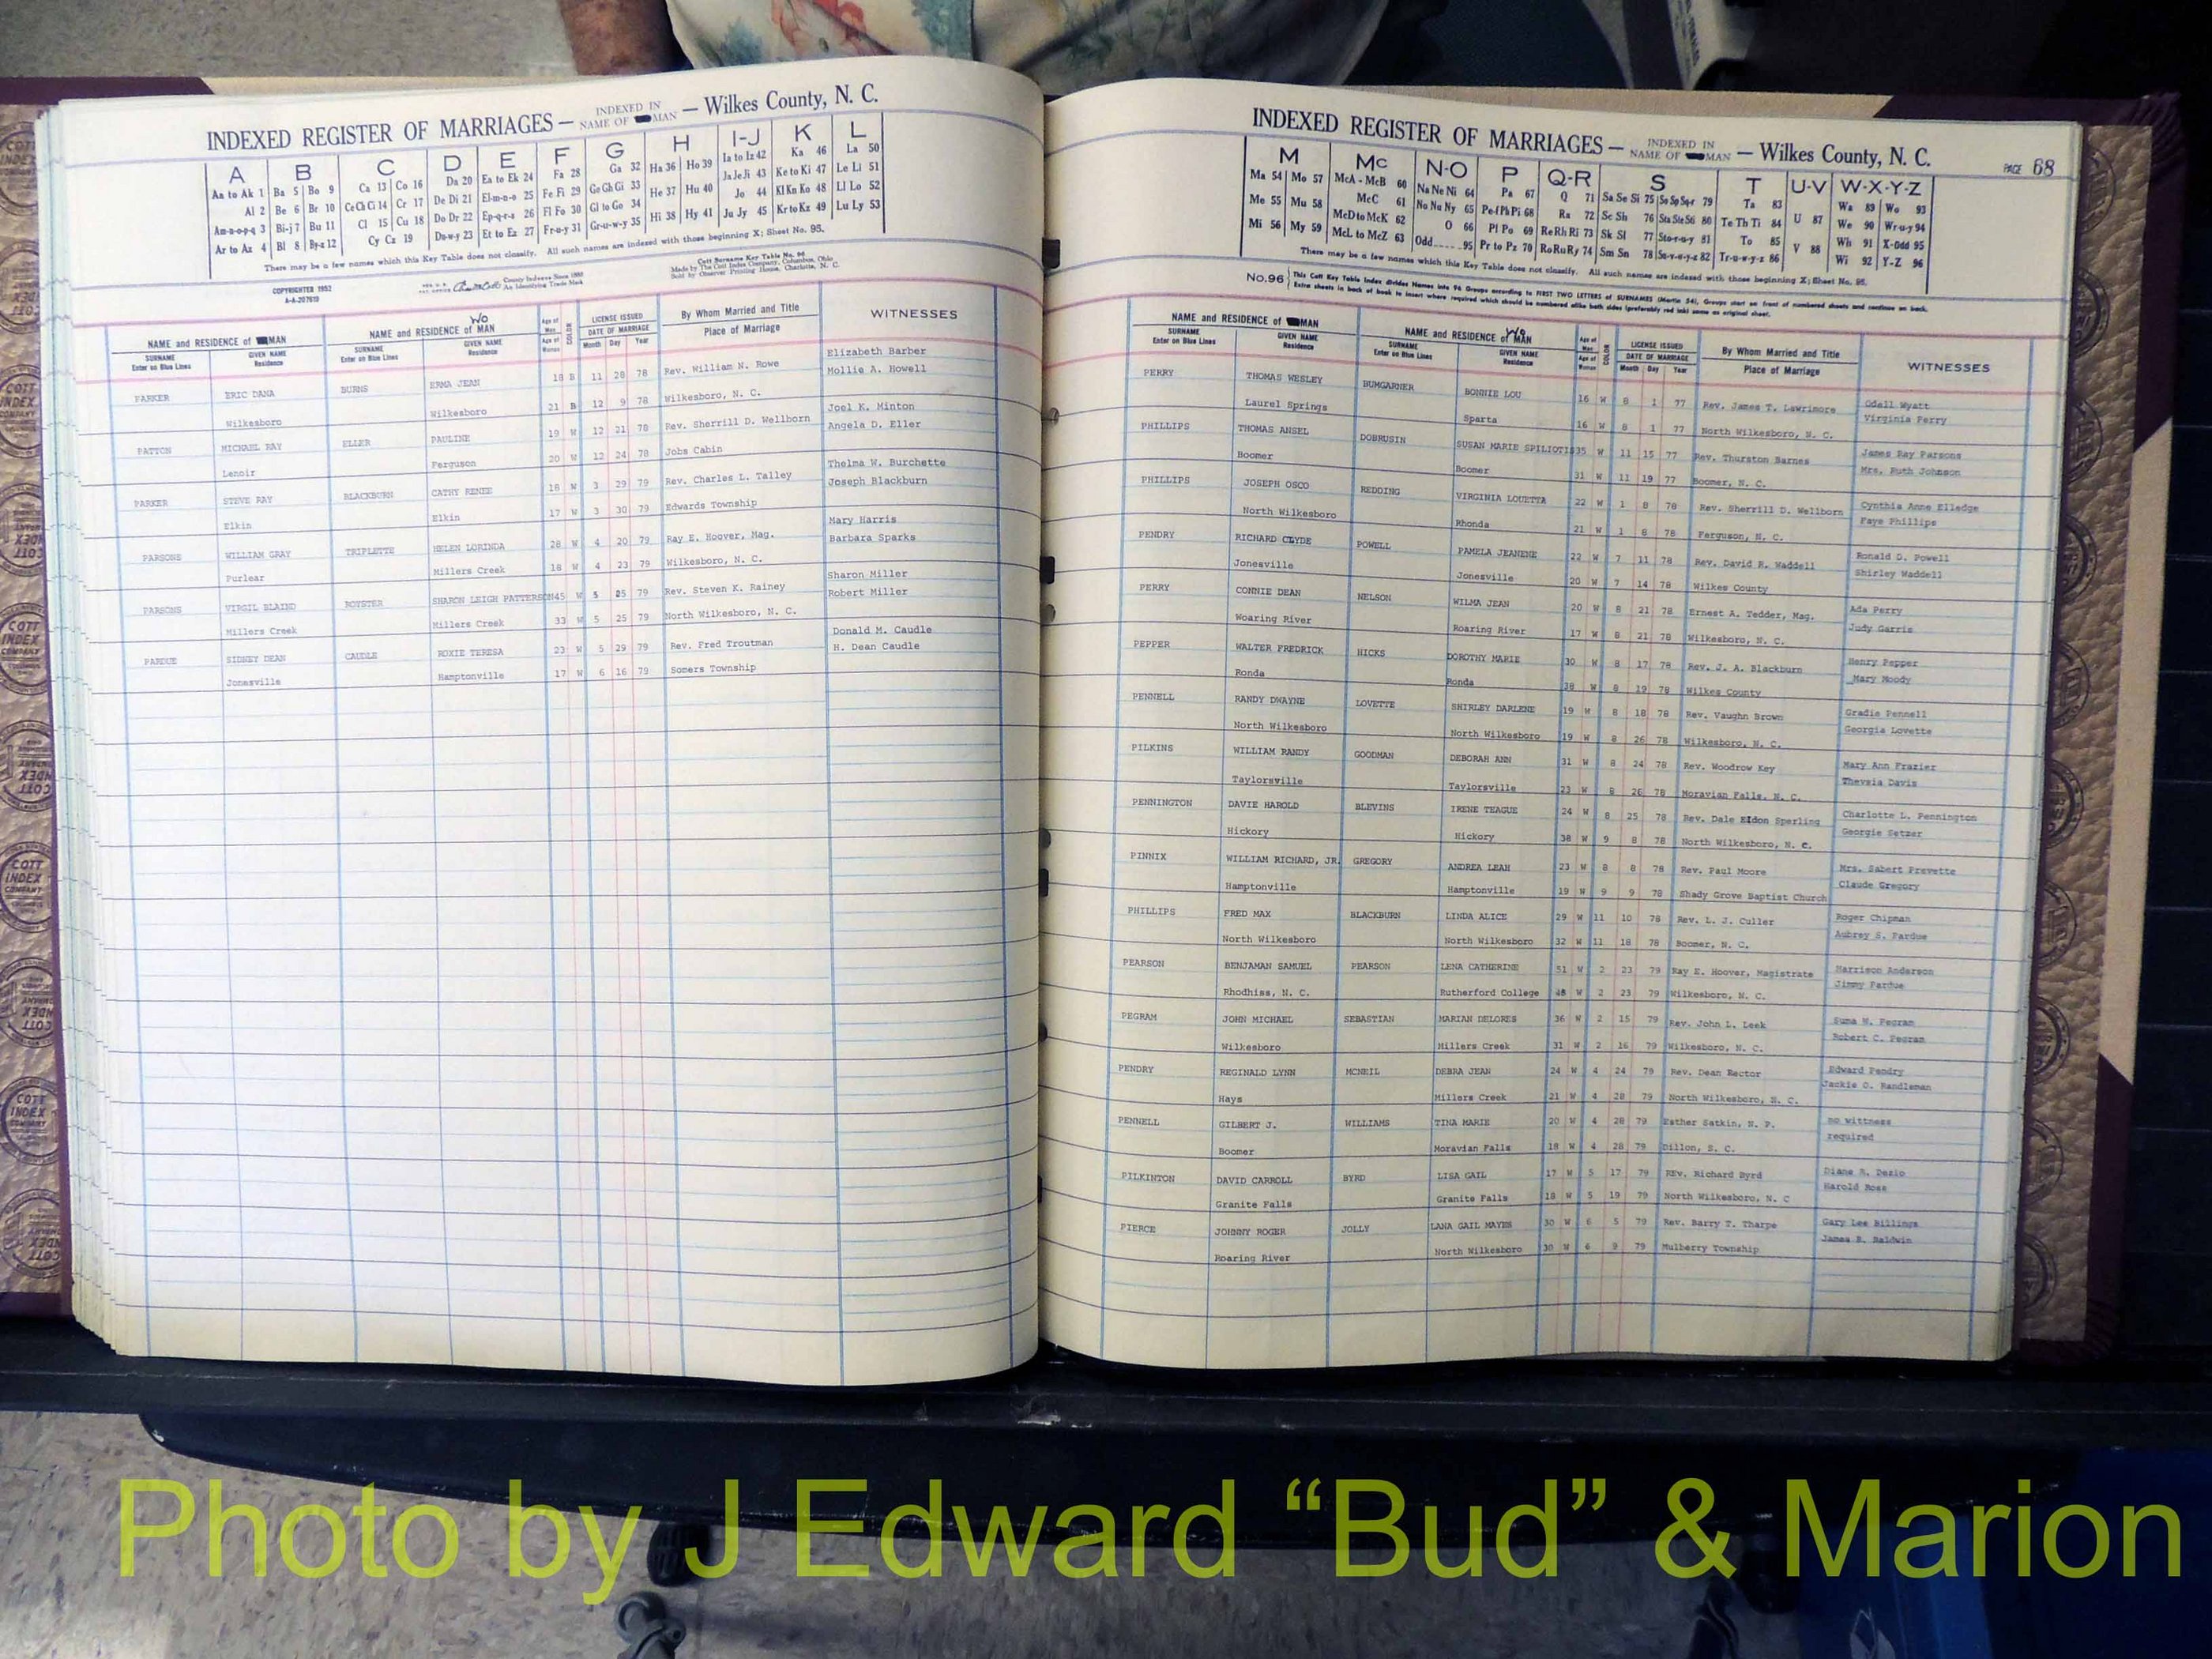 INDEXED REGISTER OF MARRIAGES — INDEXED IN NAME OF MAN — Wilkes County, N. C.
A B C D E F G H I-J K L
Aa to Ak 1 Ba 5 Bo 9 Ca 13 Co 16 Da 20 Ea to Ek 24 Fa 28 Ga 32 Ha 36 Ho 39 Ia to Iz 42 Ka 46 La 50
Al 2 Be 6 Br 10 Ce Ch Ci 14 Cr 17 De Di 21 El-m-n-o 25 Fe Fi 29 Ge Gh Gi 33 He 37 Hu 40 Ja Je Ji 43 Ke to Ki 47 Le Li 51
Am-n-o-p-q 3 Bi-j 7 Bu 11 Cl 15 Cu 18 Do Dr 22 Ep-q-r-s 26 Fl Fo 30 Gl to Go 34 Hi 38 Hy 41 Jo 44 Kl Kn Ko 48 Ll Lo 52
Ar to Az 4 Bl 8 By-z 12 Cy Cz 19 Du-w-y 23 Et to Ez 27 Fr-u-y 31 Gr-u-w-y 35 Ju Jy 45 Kr to Kz 49 Lu Ly 53
There may be a few names which this Key Table does not classify. All such names are indexed with those beginning X; Sheet No. 95.
COPYRIGHTED 1952
A-A-207819
County Indexes Since 1888
An Identifying Trade Mark
Cott Surname Key Table No. 96
Made by The Cott Index Company, Columbus, Ohio
Sold by Observer Printing House, Charlotte, N. C.
NAME and RESIDENCE of MAN NAME and RESIDENCE of WO MAN Age of Man Age of Woman COLOR LICENSE ISSUED DATE OF MARRIAGE By Whom Married and Title Place of Marriage WITNESSES
SURNAME Enter on Blue Lines GIVEN NAME Residence SURNAME Enter on Blue Lines GIVEN NAME Residence Month Day Year
PARKER ERIC DANA BURNS ERMA JEAN 18 B 11 28 78 Rev. William N. Rowe Elizabeth Barber
Wilkesboro Wilkesboro 21 B 12 9 78 Wilkesboro, N. C. Mollie A. Howell
PATTON MICHAEL RAY ELLER PAULINE 19 W 12 21 78 Rev. Sherrill D. Wellborn Joel K. Minton
Lenoir Ferguson 20 W 12 24 78 Jobs Cabin Angela D. Eller
PARKER STEVE RAY BLACKBURN CATHY RENEE 18 W 3 29 79 Rev. Charles L. Talley Thelma W. Burchette
Elkin Elkin 17 W 3 30 79 Edwards Township Joseph Blackburn
PARSONS WILLIAM GRAY TRIPLETTE HELEN LORINDA 28 W 4 20 79 Ray E. Hoover, Mag. Mary Harris
Purlear Millers Creek 18 W 4 23 79 Wilkesboro, N. C. Barbara Sparks
PARSONS VIRGIL BLAIND ROYSTER SHARON LEIGH PATTERSON 45 W 5 25 79 Rev. Steven K. Rainey Sharon Miller
Millers Creek Millers Creek 33 W 5 25 79 North Wilkesboro, N. C. Robert Miller
PARDUE SIDNEY DEAN CAUDLE ROXIE TERESA 23 W 5 29 79 Rev. Fred Troutman Donald M. Caudle
Jonesville Hamptonville 17 W 6 16 79 Somers Township H. Dean Caudle
INDEXED REGISTER OF MARRIAGES — INDEXED IN NAME OF MAN — Wilkes County, N. C. PAGE 68
M Mc N-O P Q-R S T U-V W-X-Y-Z
Ma 54 Mo 57 McA - McB 60 Na Ne Ni 64 Pa 67 Q 71 Sa Se Si 75 So Sp Sq-r 79 Ta 83 U 87 Wa 89 Wo 93
Me 55 Mu 58 McC 61 No Nu Ny 65 Pe-f Ph Pi 68 Ra 72 Sc Sh 76 Sta Ste Sti 80 Te Th Ti 84 V 88 We 90 Wr-u-y 94
Mi 56 My 59 McD to McK 62 O 66 Pl Po 69 Re Rh Ri 73 Sk Sl 77 Sto-r-u-y 81 To 85 Wh 91 X-Odd 95
McL to McZ 63 Odd 95 Pr to Pz 70 Ro Ru Ry 74 Sm Sn 78 Su-v-w-y-z 82 Tr-u-w-y-z 86 Wi 92 Y-Z 96
There may be a few names which this Key Table does not classify. All such names are indexed with those beginning X; Sheet No. 95.
No. 96 This Cott Key Table Index divides Names into 96 Groups according to FIRST TWO LETTERS of SURNAMES (Martin 54), Groups start on front of numbered sheets and continue on back.
Extra sheets in back of book to insert where required which should be numbered alike both sides (preferably red ink) same as original sheet.
NAME and RESIDENCE of MAN NAME and RESIDENCE of Wo MAN Age of Man Age of Woman COLOR LICENSE ISSUED DATE OF MARRIAGE By Whom Married and Title Place of Marriage WITNESSES
SURNAME Enter on Blue Lines GIVEN NAME Residence SURNAME Enter on Blue Lines GIVEN NAME Residence Month Day Year
PERRY THOMAS WESLEY BUMGARNER BONNIE LOU 16 W 8 1 77 Rev. James T. Lawrimore Odell Wyatt
Laurel Springs Sparta 16 W 8 1 77 North Wilkesboro, N. C. Virginia Perry
PHILLIPS THOMAS ANSEL DOBRUSIN SUSAN MARIE SPILIOTIS 35 W 11 15 77 Rev. Thurston Barnes James Ray Parsons
Boomer Boomer 31 W 11 19 77 Boomer, N. C. Mrs. Ruth Johnson
PHILLIPS JOSEPH OSCO REDDING VIRGINIA LOUETTA 22 W 1 8 78 Rev. Sherrill D. Wellborn Cynthia Anne Elledge
North Wilkesboro Rhonda 21 W 1 8 78 Ferguson, N. C. Faye Phillips
PENDRY RICHARD CLYDE POWELL PAMELA JEANENE 22 W 7 11 78 Rev. David R. Waddell Ronald D. Powell
Jonesville Jonesville 20 W 7 14 78 Wilkes County Shirley Waddell
PERRY CONNIE DEAN NELSON WILMA JEAN 20 W 8 21 78 Ernest A. Tedder, Mag. Ada Perry
Woaring River Roaring River 17 W 8 21 78 Wilkesboro, N. C. Judy Garris
PEPPER WALTER FREDRICK HICKS DOROTHY MARIE 30 W 8 17 78 Rev. J. A. Blackburn Henry Pepper
Ronda Ronda 38 W 8 19 78 Wilkes County Mary Moody
PENNELL RANDY DWAYNE LOVETTE SHIRLEY DARLENE 19 W 8 18 78 Rev. Vaughn Brown Gradie Pennell
North Wilkesboro North Wilkesboro 19 W 8 26 78 Wilkesboro, N. C. Georgia Lovette
PILKINS WILLIAM RANDY GOODMAN DEBORAH ANN 31 W 8 24 78 Rev. Woodrow Key Mary Ann Frazier
Taylorsville Taylorsville 23 W 8 26 78 Moravian Falls, N. C. Thevsia Davis
PENNINGTON DAVIE HAROLD BLEVINS IRENE TEAGUE 24 W 8 25 78 Rev. Dale Eldon Sperling Charlotte L. Pennington
Hickory Hickory 38 W 9 8 78 North Wilkesboro, N. C. Georgie Setzer
PINNIX WILLIAM RICHARD, JR. GREGORY ANDREA LEAH 23 W 8 8 78 Rev. Paul Moore Mrs. Sabert Prevette
Hamptonville Hamptonville 19 W 9 9 78 Shady Grove Baptist Church Claude Gregory
PHILLIPS FRED MAX BLACKBURN LINDA ALICE 29 W 11 10 78 Rev. L. J. Culler Roger Chipman
North Wilkesboro North Wilkesboro 32 W 11 18 78 Boomer, N. C. Aubrey S. Pardue
PEARSON BENJAMAN SAMUEL PEARSON LENA CATHERINE 51 W 2 23 79 Ray E. Hoover, Magistrate Harrison Anderson
Rhodhiss, N. C. Rutherford College 48 W 2 23 79 Wilkesboro, N. C. Jimmy Pardue
PEGRAM JOHN MICHAEL SEBASTIAN MARIAN DELORES 36 W 2 15 79 Rev. John L. Leek Suma W. Pegram
Wilkesboro Millers Creek 31 W 2 16 79 Wilkesboro, N. C. Robert C. Pegram
PENDRY REGINALD LYNN MCNEIL DEBRA JEAN 24 W 4 24 79 Rev. Dean Rector Edward Pendry
Hays Millers Creek 21 W 4 28 79 North Wilkesboro, N. C. Jackie O. Handleman
PENNELL GILBERT J. WILLIAMS TINA MARIE 20 W 4 28 79 Esther Satkin, N. P. no wittness
Boomer Moravian Falls 18 W 4 28 79 Dillon, S. C. required
PILKINTON DAVID CARROLL BYRD LISA GAIL 17 W 5 17 79 REv. Richard Byrd Diane R. Dezio
Granite Falls Granite Falls 18 W 5 19 79 North Wilkesboro, N. C Harold Ross
PIERCE JOHNNY ROGER JOLLY LANA GAIL MAYES 30 W 6 5 79 Rev. Barry T. Tharpe Gary Lee Billings
Roaring River North Wilkesboro 30 W 6 9 79 Mulberry Township James R. Baldwin
Photo by J Edward “Bud” & Marion